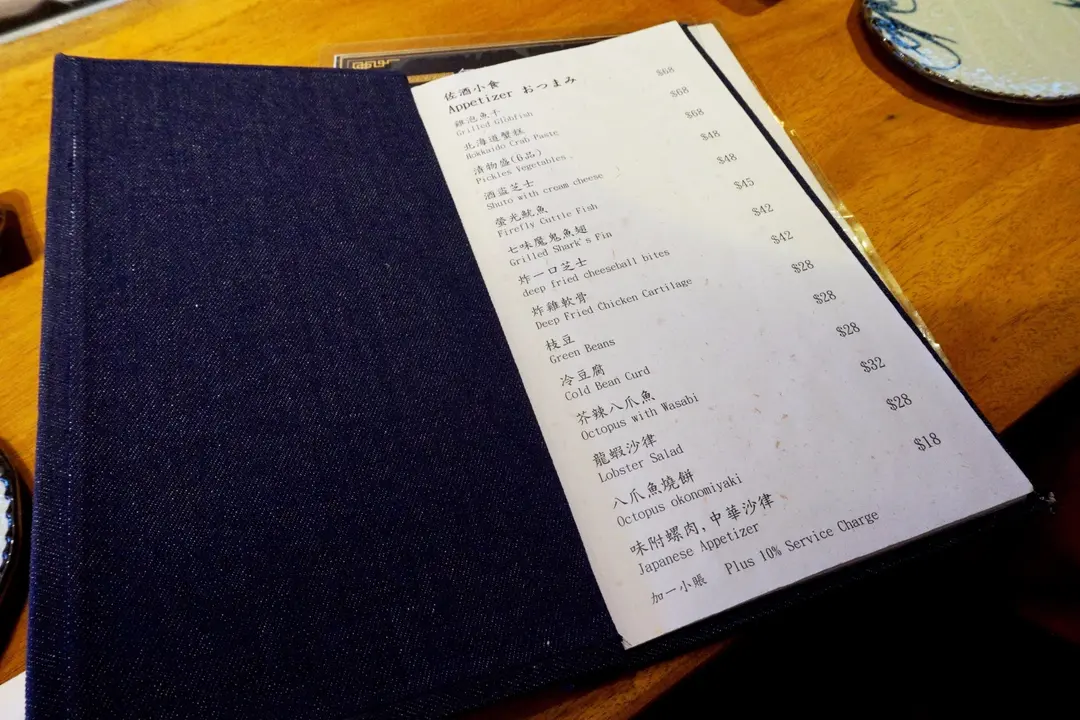 佐酒小食
Appetizer おつまみ
雞泡魚干 $68
Grilled Globfish
北海道蟹糕 $68
Hokkaido Crab Paste
漬物盛(6品) $68
Pickles Vegetables
酒盗芝士 $48
Shuto with cream cheese
螢光魷魚 $48
Firefly Cuttle Fish
七味魔鬼魚翅 $45
Grilled Shark's Fin
炸一口芝士 $42
deep fried cheeseball bites
炸雞軟骨 $42
Deep Fried Chicken Cartilage
枝豆 $28
Green Beans
冷豆腐 $28
Cold Bean Curd
芥辣八爪魚 $28
Octopus with Wasabi
龍蝦沙律 $32
Lobster Salad
八爪魚燒餅 $28
Octopus okonomiyaki
味附螺肉,中華沙律 $18
Japanese Appetizer
加一小賬 Plus 10% Service Charge